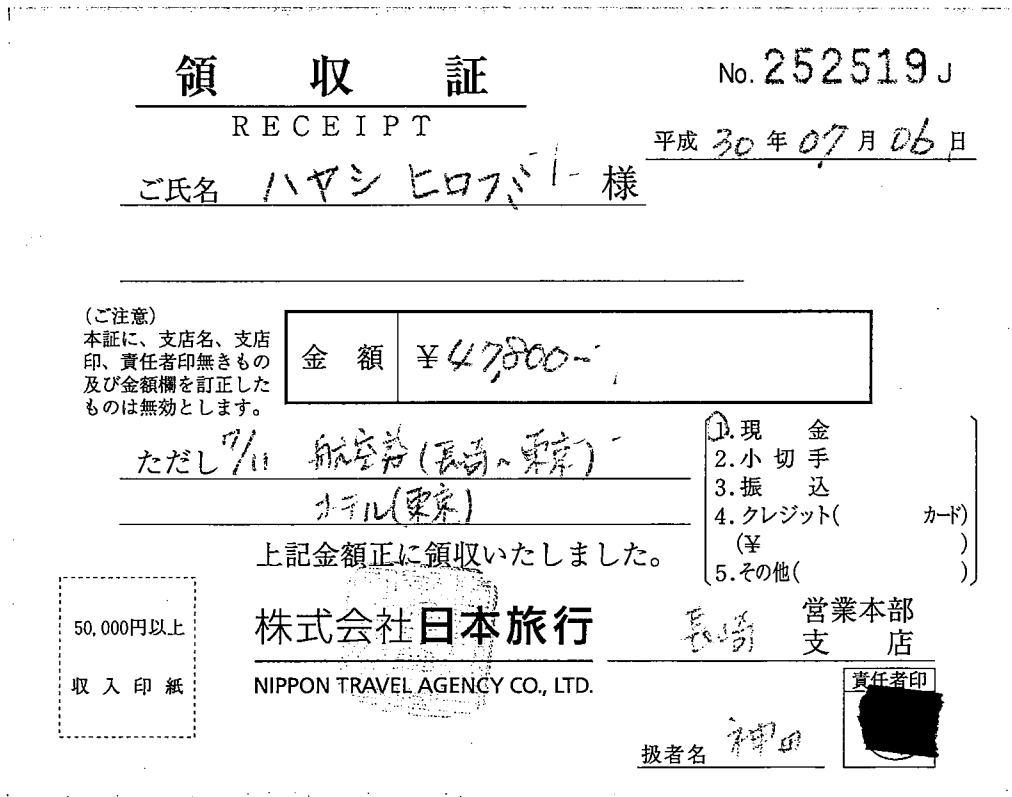 領 収 証
RECEIPT
No. 252519 J
平成 30 年 07 月 06 日
ご氏名 ハヤシ ヒロフミ 様
(ご注意)
本証に、支店名、支店
印、責任者印無きもの
及び金額欄を訂正した
ものは無効とします。
金 額 ¥47,800-
ただし 7/11 航空券(長崎~東京)
ホテル(東京)
1.現 金
2.小 切 手
3.振 込
4.クレジット( カード)
(¥ )
5.その他( )
上記金額正に領収いたしました。
50,000円以上
収 入 印 紙
株式会社日本旅行
NIPPON TRAVEL AGENCY CO., LTD.
長崎 営業本部
支 店
責任者印
扱者名 神田